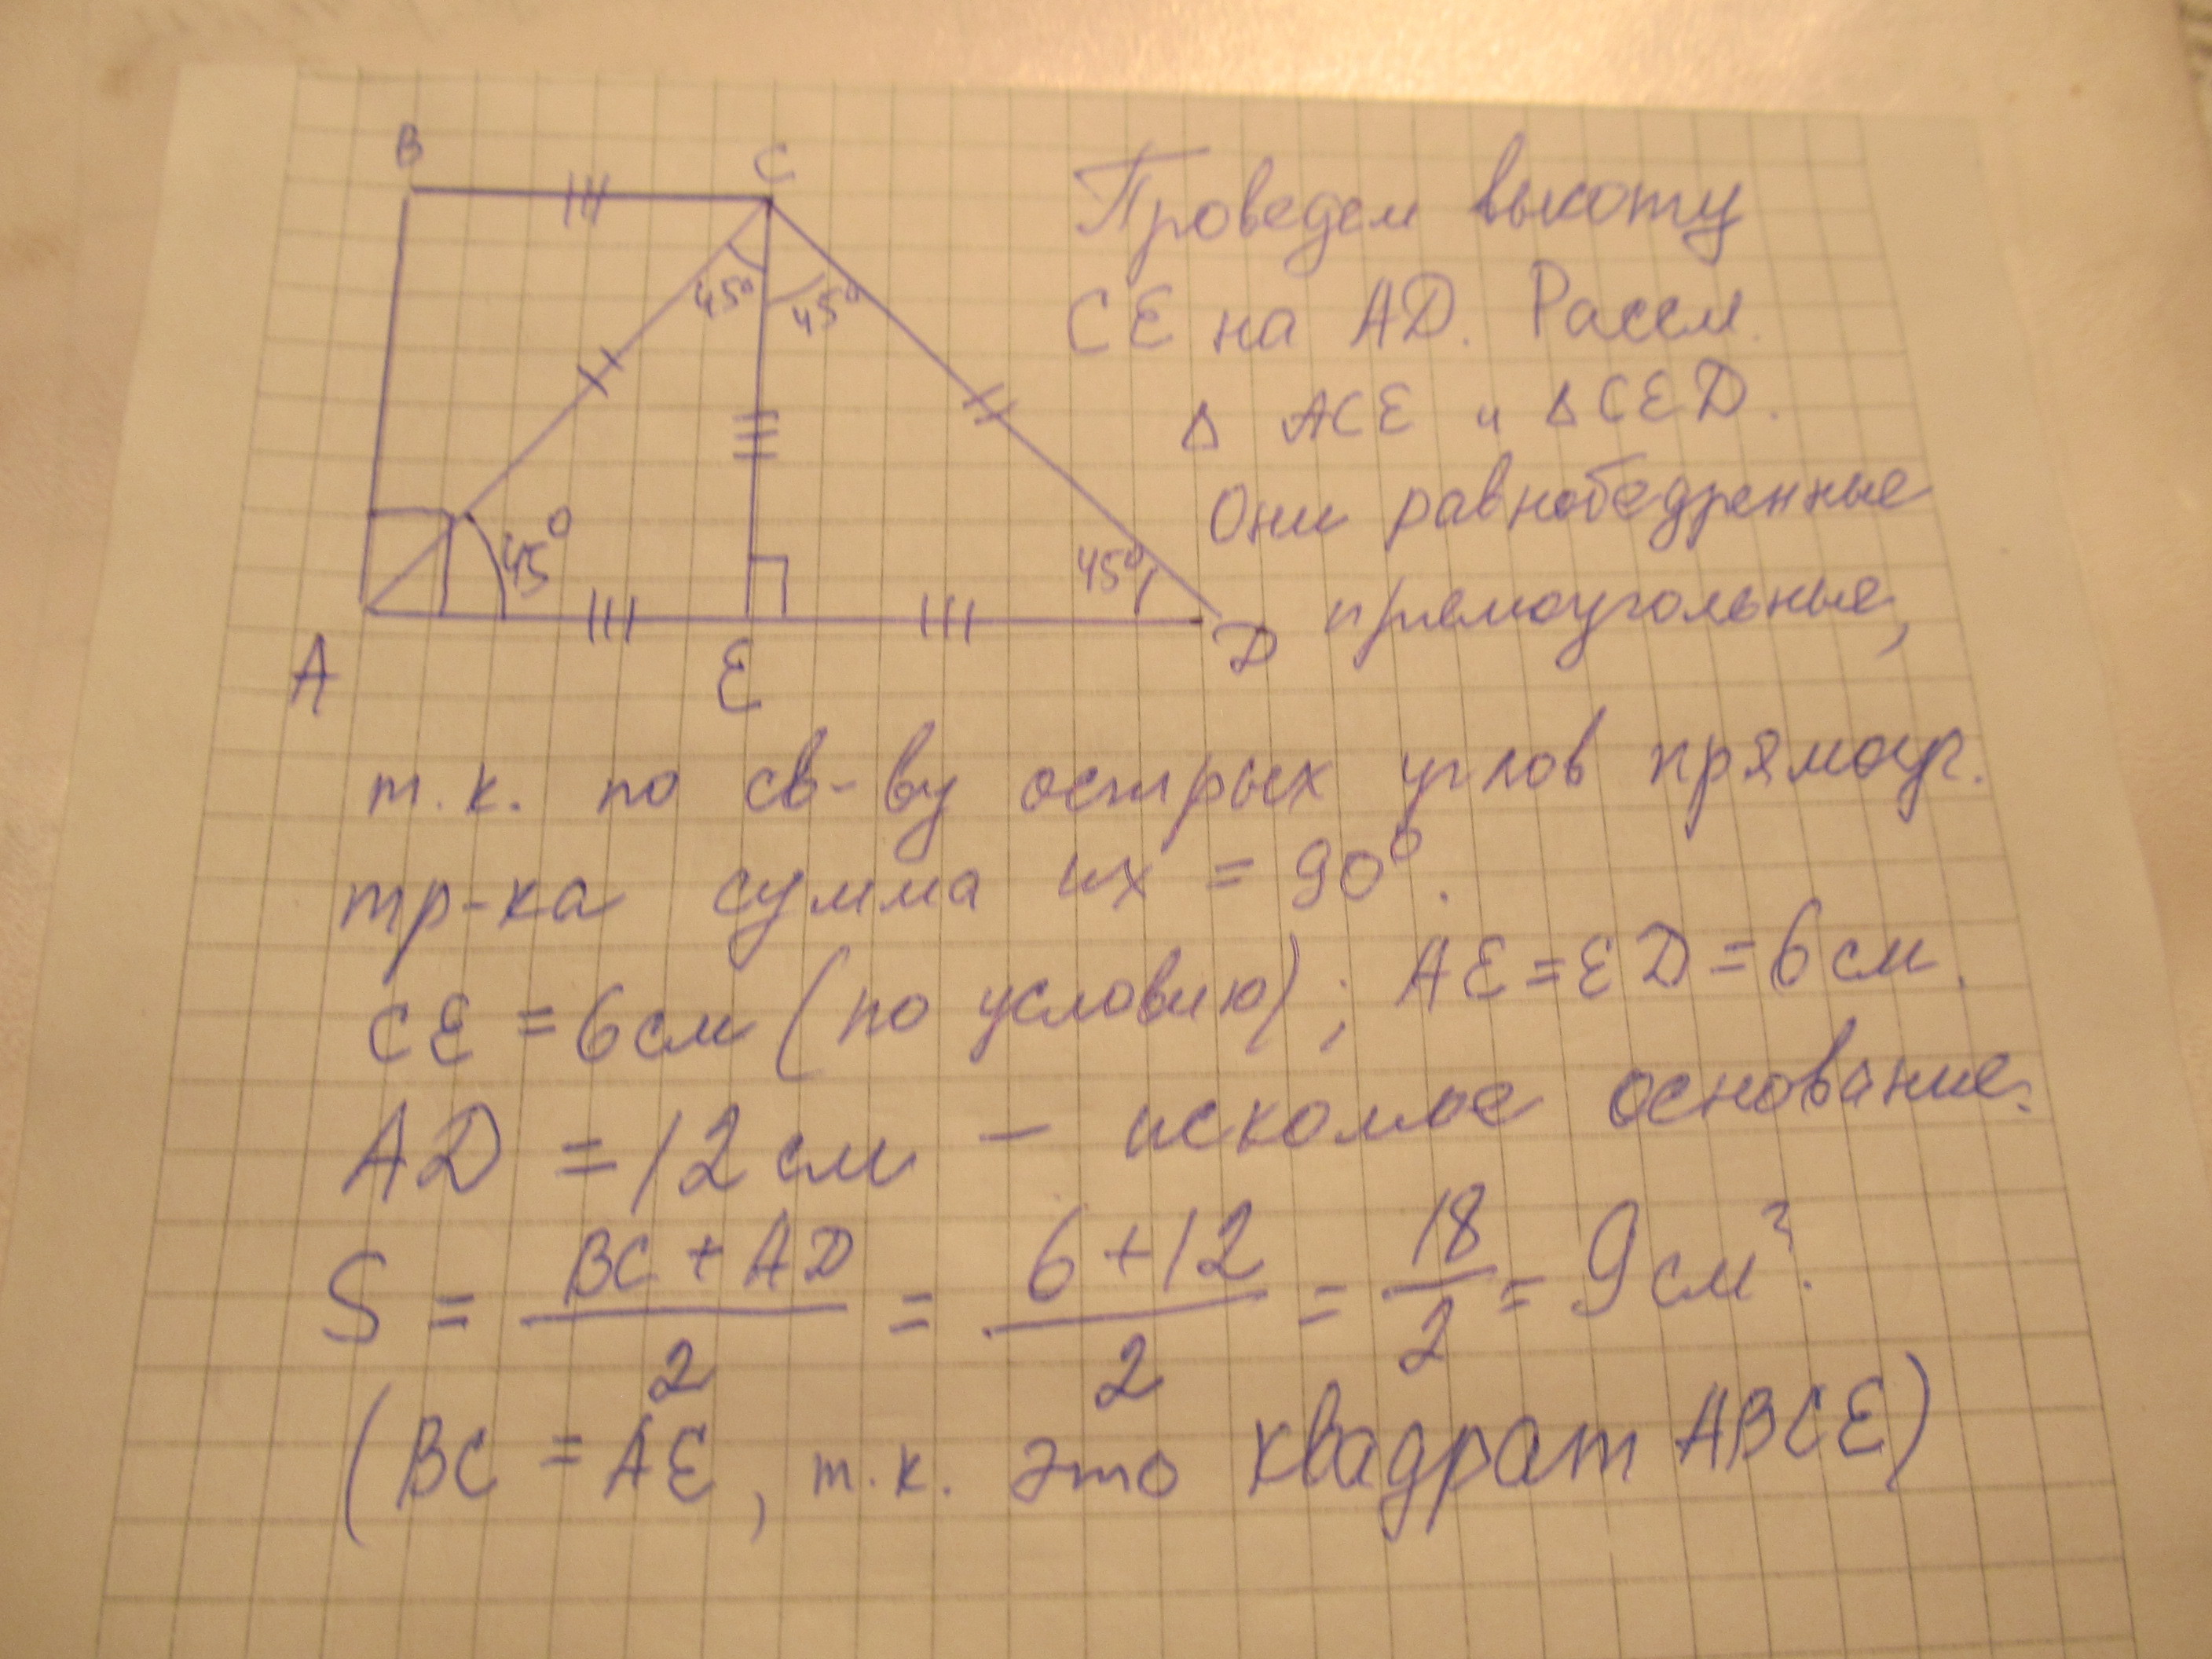 B C
Проведем высоту
45° 45°
CE на AD. Рассм.
Δ ACE и ΔCED.
Они равнобедренные
45° 45°
прямоугольные,
A E D
т.к. по св-ву острых углов прямоуг.
тр-ка сумма их = 90°.
CE = 6 см (по условию); AE = ED = 6 см.
AD = 12 см — искомое основание.
S = BC + AD / 2 = 6 + 12 / 2 = 18 / 2 = 9 см².
(BC = AE, т.к. это квадрат ABCE)